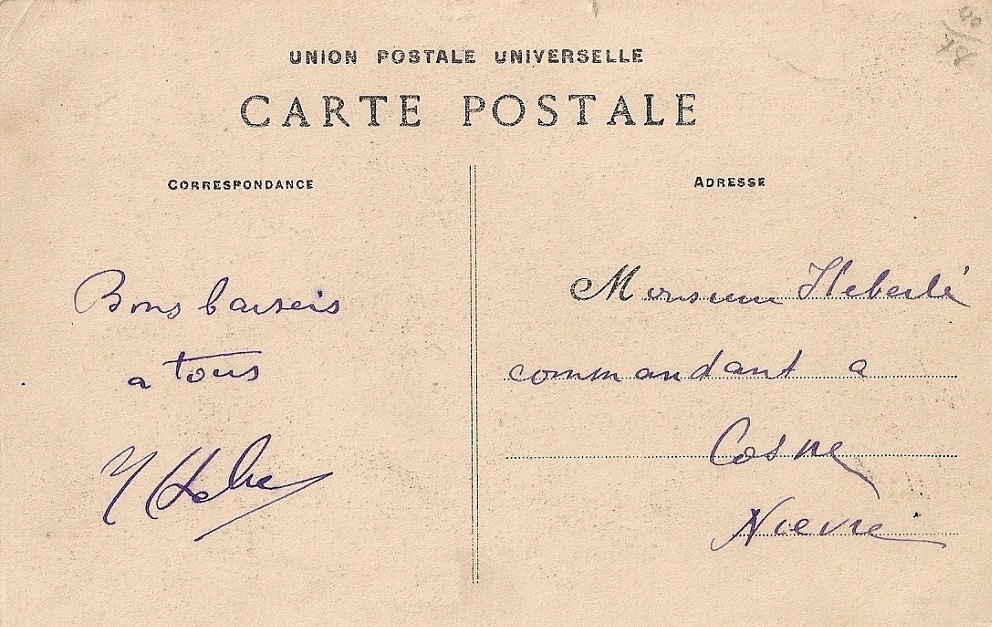 UNION POSTALE UNIVERSELLE
CARTE POSTALE
CORRESPONDANCE
ADRESSE
Bons baisers
a tous
Monsieur Heberlé
commandant a
Cosne
Nievre